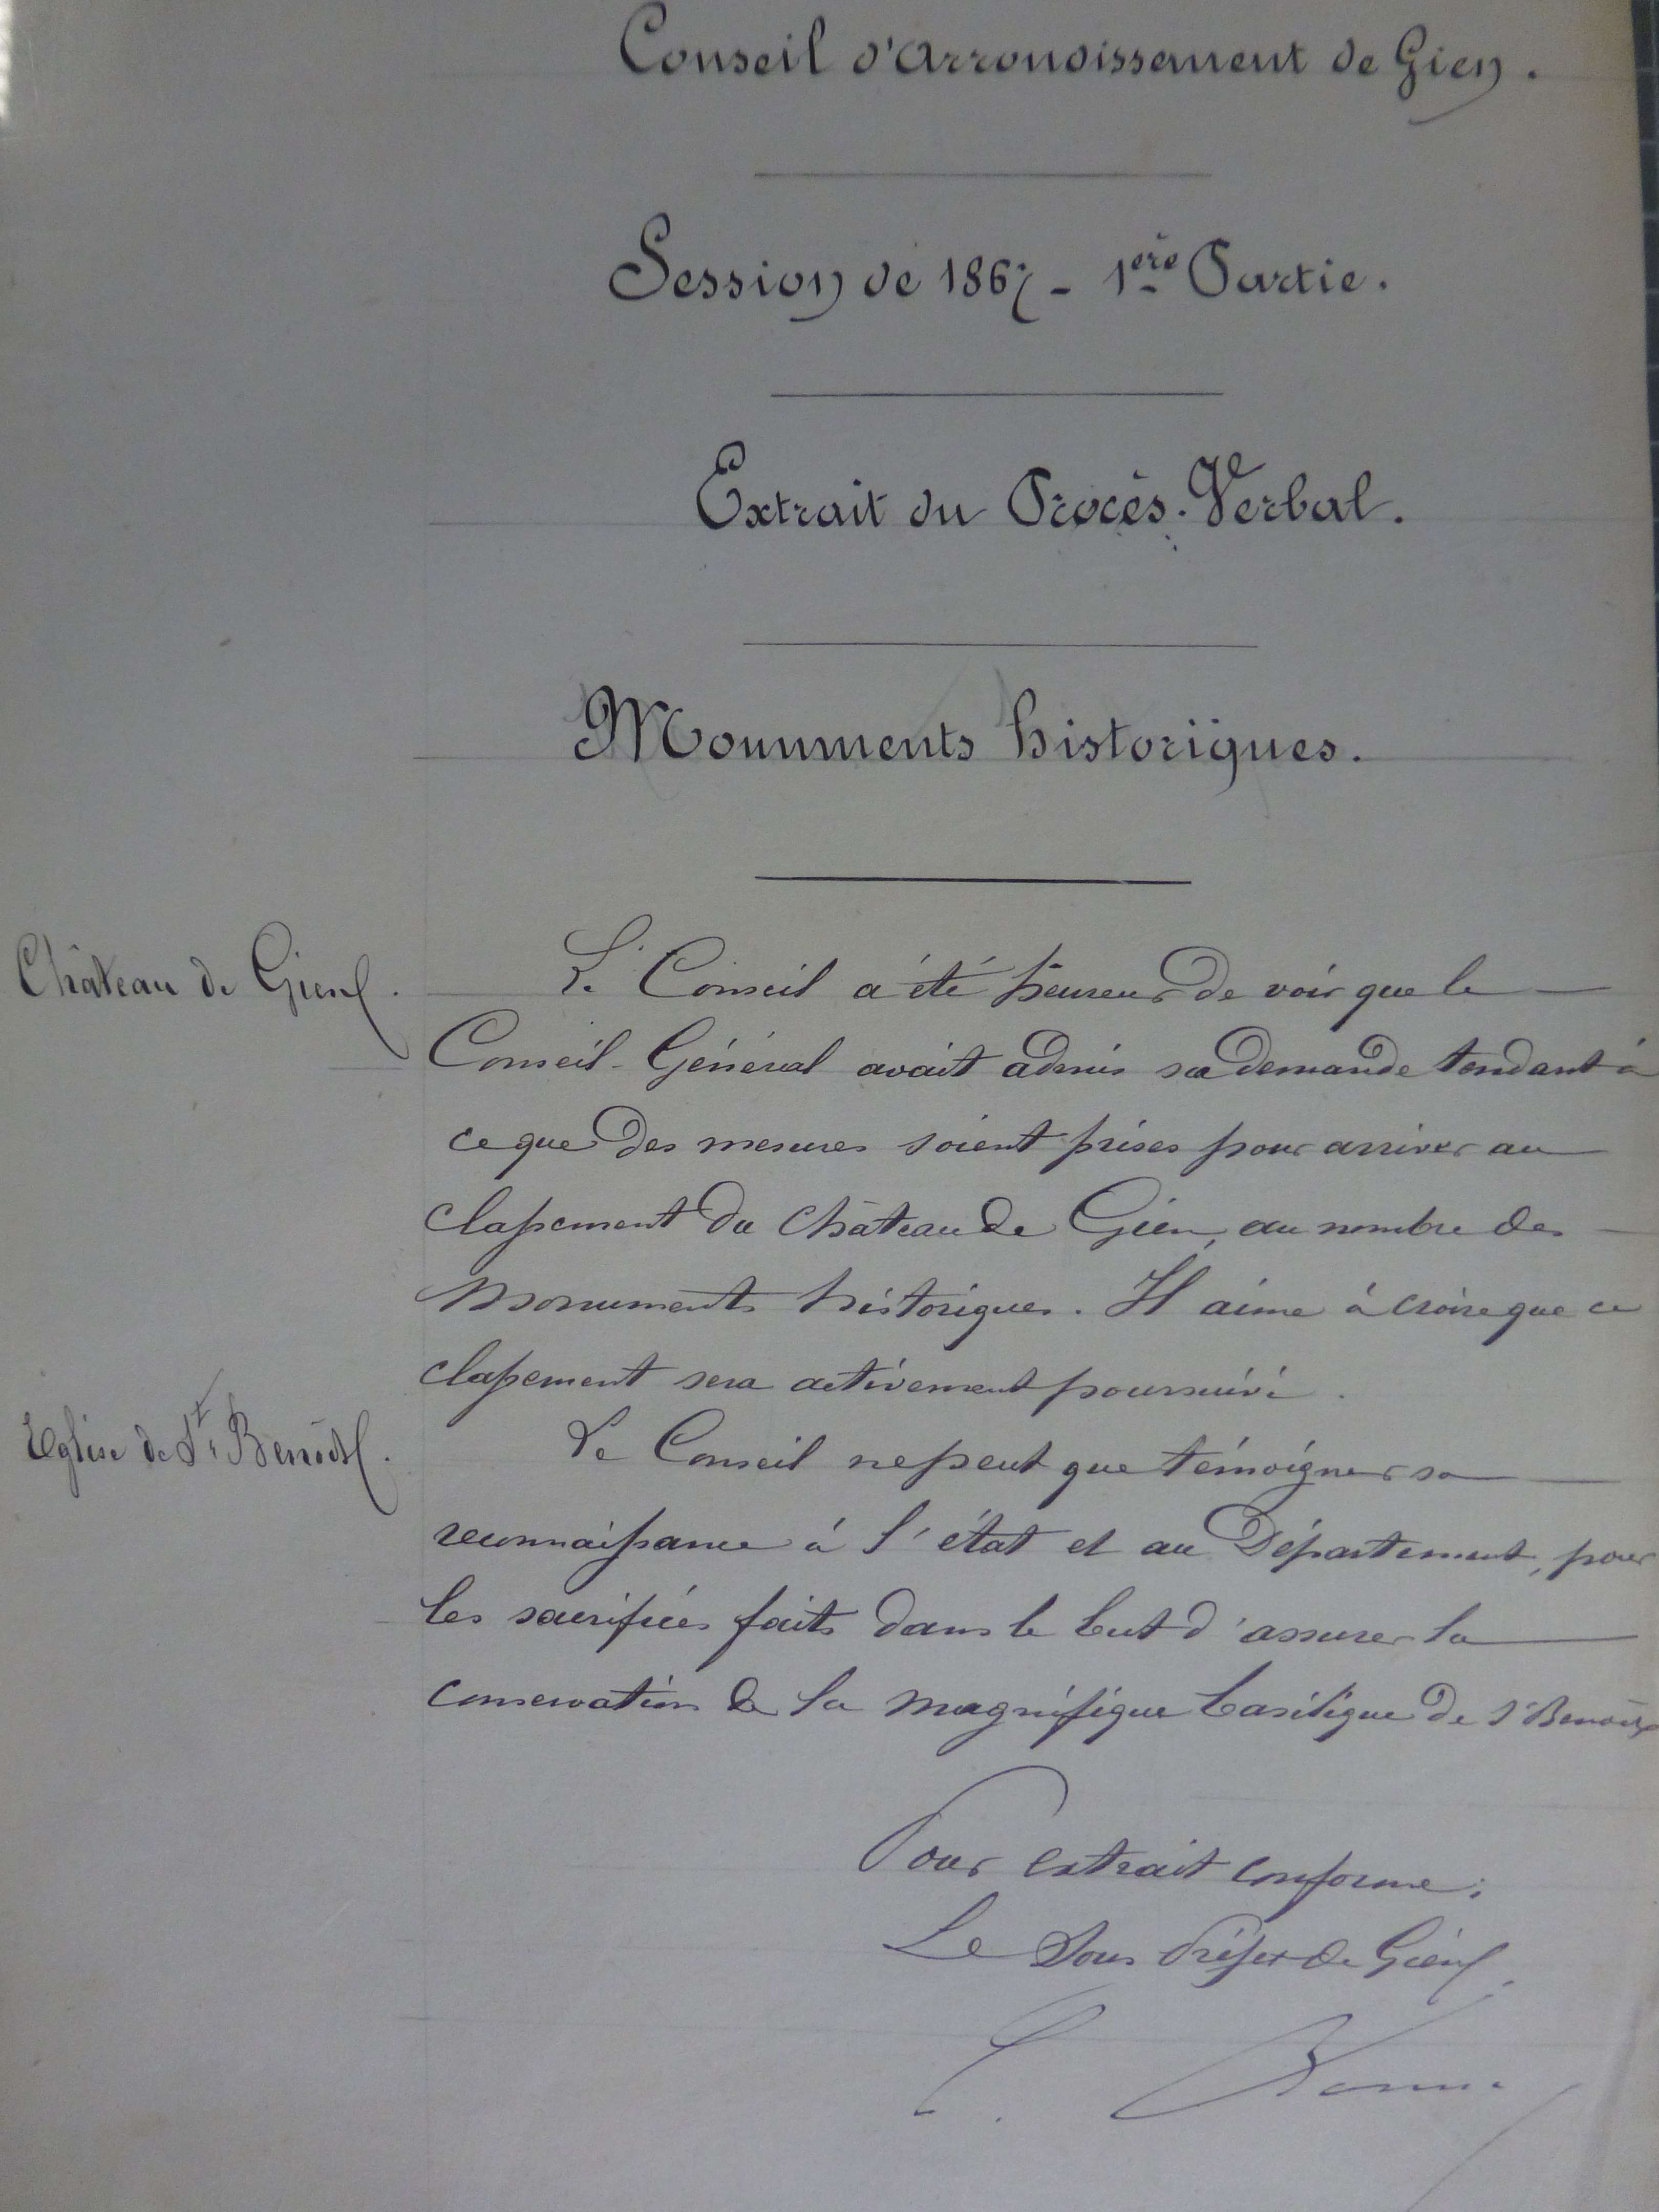 Conseil d'Arrondissement de Gien.
Session de 1867 - 1ère Partie.
Extrait du Procès-Verbal.
Monuments historiques.
Château de Gien.
Le Conseil a été heureux de voir que le
Conseil Général avait admis sa demande tendant à
ce que des mesures soient prises pour arriver au
classement du Château de Gien, au nombre des
Monuments historiques. Il aime à croire que ce
classement sera activement poursuivi.
Eglise de St Benoît.
Le Conseil ne peut que témoigner sa
reconnaissance à l'état et au Département, pour
les sacrifices faits dans le but d'assurer la
conservation de la magnifique basilique de St Benoît
Pour extrait conforme:
Le Sous Préfet de Gien,